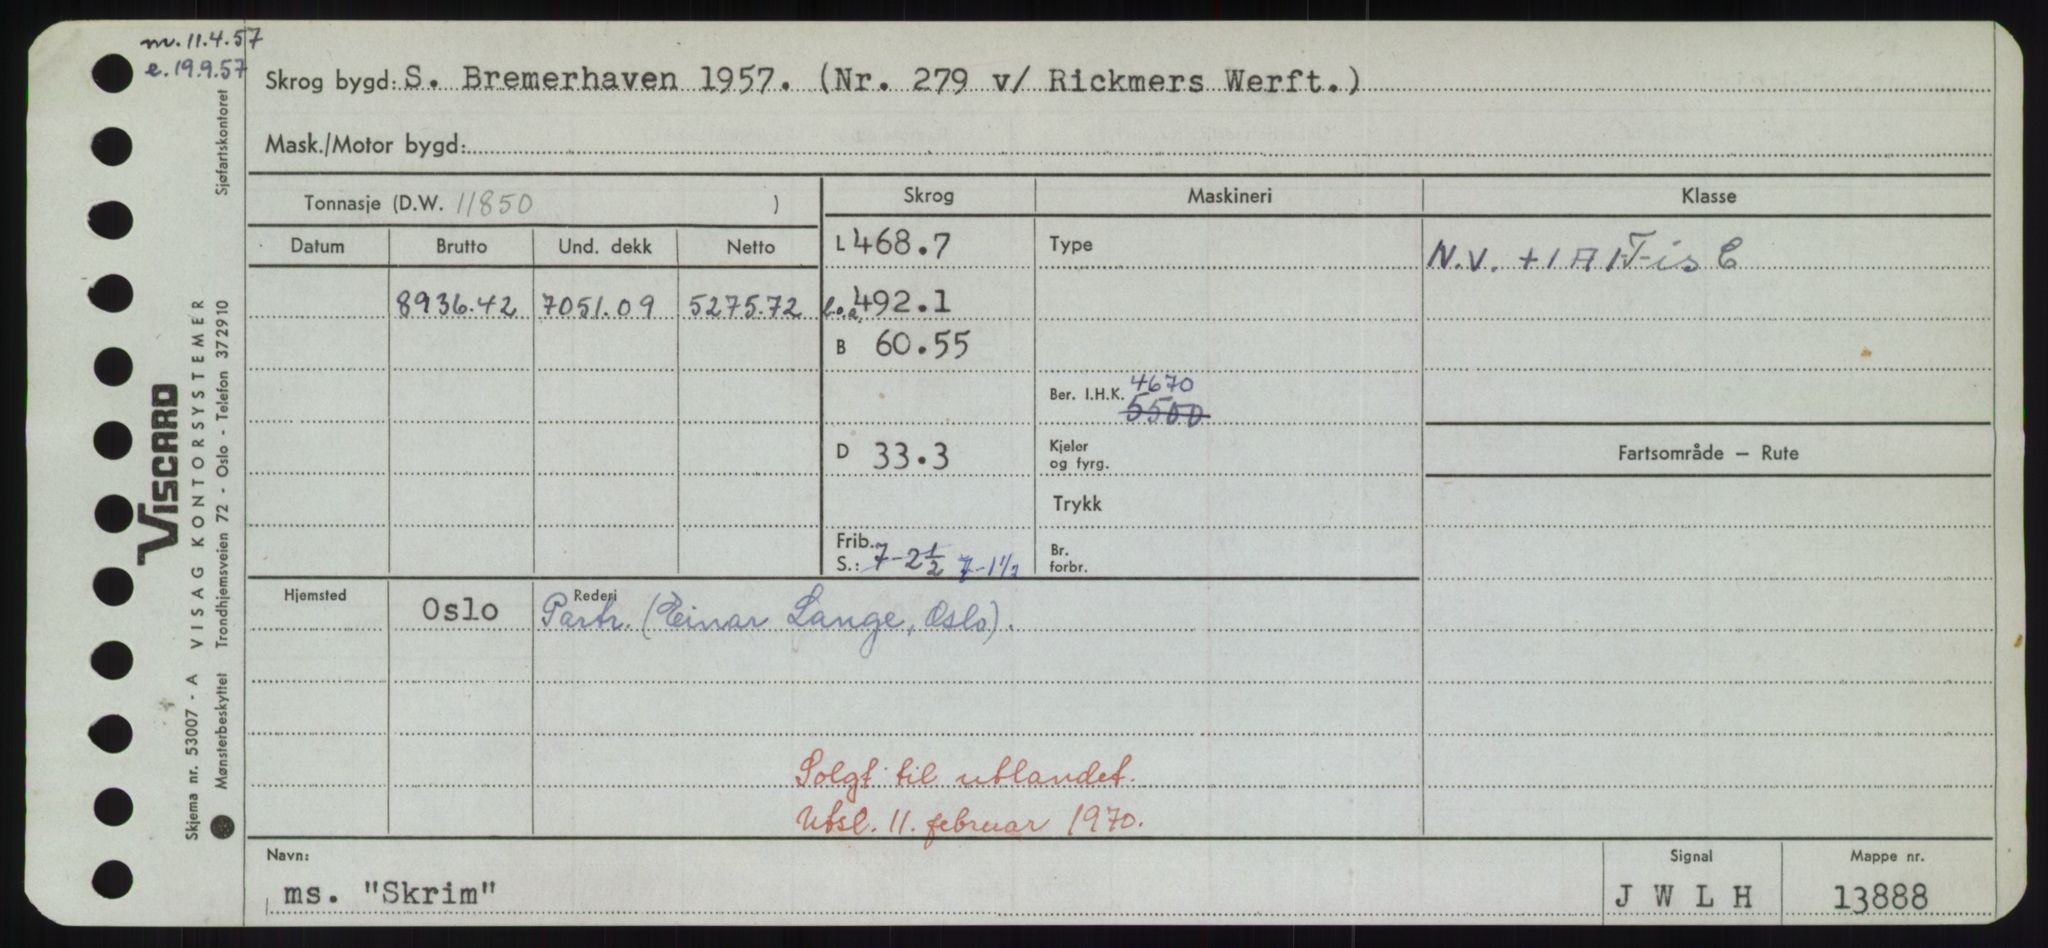 m. 11.4.57
e. 19.9.57
Skrog bygd: S. Bremerhaven 1957. (Nr. 279 v/ Rickmers Werft.)
Mask./Motor bygd:
Tonnasje (D.W. 11850 )
Skrog Maskineri Klasse
Datum Brutto Und. dekk Netto
L 468.7 Type N.V. + 1 A 1 T- is C
8936.42 7051.09 5275.72 l.o.a. 492.1
B 60.55
Ber. I.H.K. 4670
5500
D 33.3
Kjeler
og fyrg.
Fartsområde – Rute
Trykk
Frib.
S.: 7-2½ 7-1½
Br.
forbr.
Hjemsted Rederi
Oslo Partr. (Einar Lange, Oslo).
Solgt til utlandet.
Utsl. 11. februar 1970.
Navn: Signal Mappe nr.
ms. "Skrim" J W L H 13888
VISCARD
Skjema nr. 53007 - A VISAG KONTORSYSTEMER
Mønsterbeskyttet Trondhjemsveien 72 - Oslo - Telefon 372910 Sjøfartskontoret